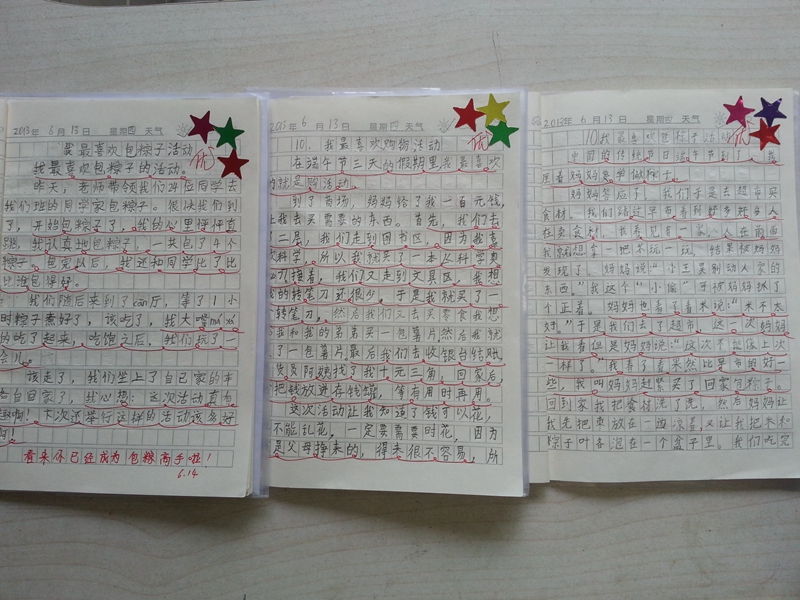 2013年 6月 13日 星期四 天气
我最喜欢包粽子活动
优
我最喜欢包粽子的活动。
昨天，老师带领我们24位同学去
我们班的同学家包粽子。很快我们到
了，开始包粽子了，我的心里怦怦直
跳，我认真地包粽子。一共包了4个
粽子。包完以后，我还和同学比了比
谁包得好。
我们随后来到了cān厅，等了1小
时粽子煮好了，该吃了，我大嘴
的吃了起来，吃饱之后，我们玩了一
会儿。
该走了，我们坐上了自己家的车
各自回家了，我心想：这次活动真有
趣啊！下次还举行这样的活动该多好
啊！
看来你已经成为包粽高手啦！
6.14
6月 13日 星期四 天气
10.我最喜欢购物活动
优
在端午节三天的假期里我最喜欢
的就是购活动。
到了商场，妈妈给了我一百元钱，
让我去买需要的东西。首先，我们去
了二层，我们走到图书区，因为我喜
欢科学，所以我就买了一本
接着，我们又走到文具区，我想
我的转笔刀还很少，于是我就买了一
转笔刀，然后我们又去买零食我想
和我的弟弟买一包薯片，然后我就
了一包薯片，最后我们去收银台结账，
阿姨找了我十元三角。回家后，
把钱放进存钱罐，等有用时再用。
这次活动让我知道了钱可以花，
不能乱花，一定要需要时花，因为
是父母挣来的，得来很不容易，所
2013年 6月 13日 星期四 天气
10我最喜欢包粽子活动
优
中国的传统节日端午节到了，我
居着妈妈要学做粽子。
妈妈答应了，我们于是去超市买
食材，我们路过早市看到好多好多人
在卖食材，我看见有一家人在卖
我就想拿一把不玩一玩，结果被妈妈
发现了，妈妈说：“小王昊别动人家的
东西”我这个“小偷”可被妈妈抓了
个正着。妈妈也看了看米说：“米不太
好，”于是我们去了超市，这一次妈妈
让我看但是妈妈说：“这次不能像上次
一样了。”我看了看果然比早市的好一
些，我叫妈妈赶紧买了回家包粽子。
回到家我把食材洗了洗，然后妈妈让
我先把枣放在一边凉着，又让我把米和
粽子叶各泡在一个盆子里。我们吃完